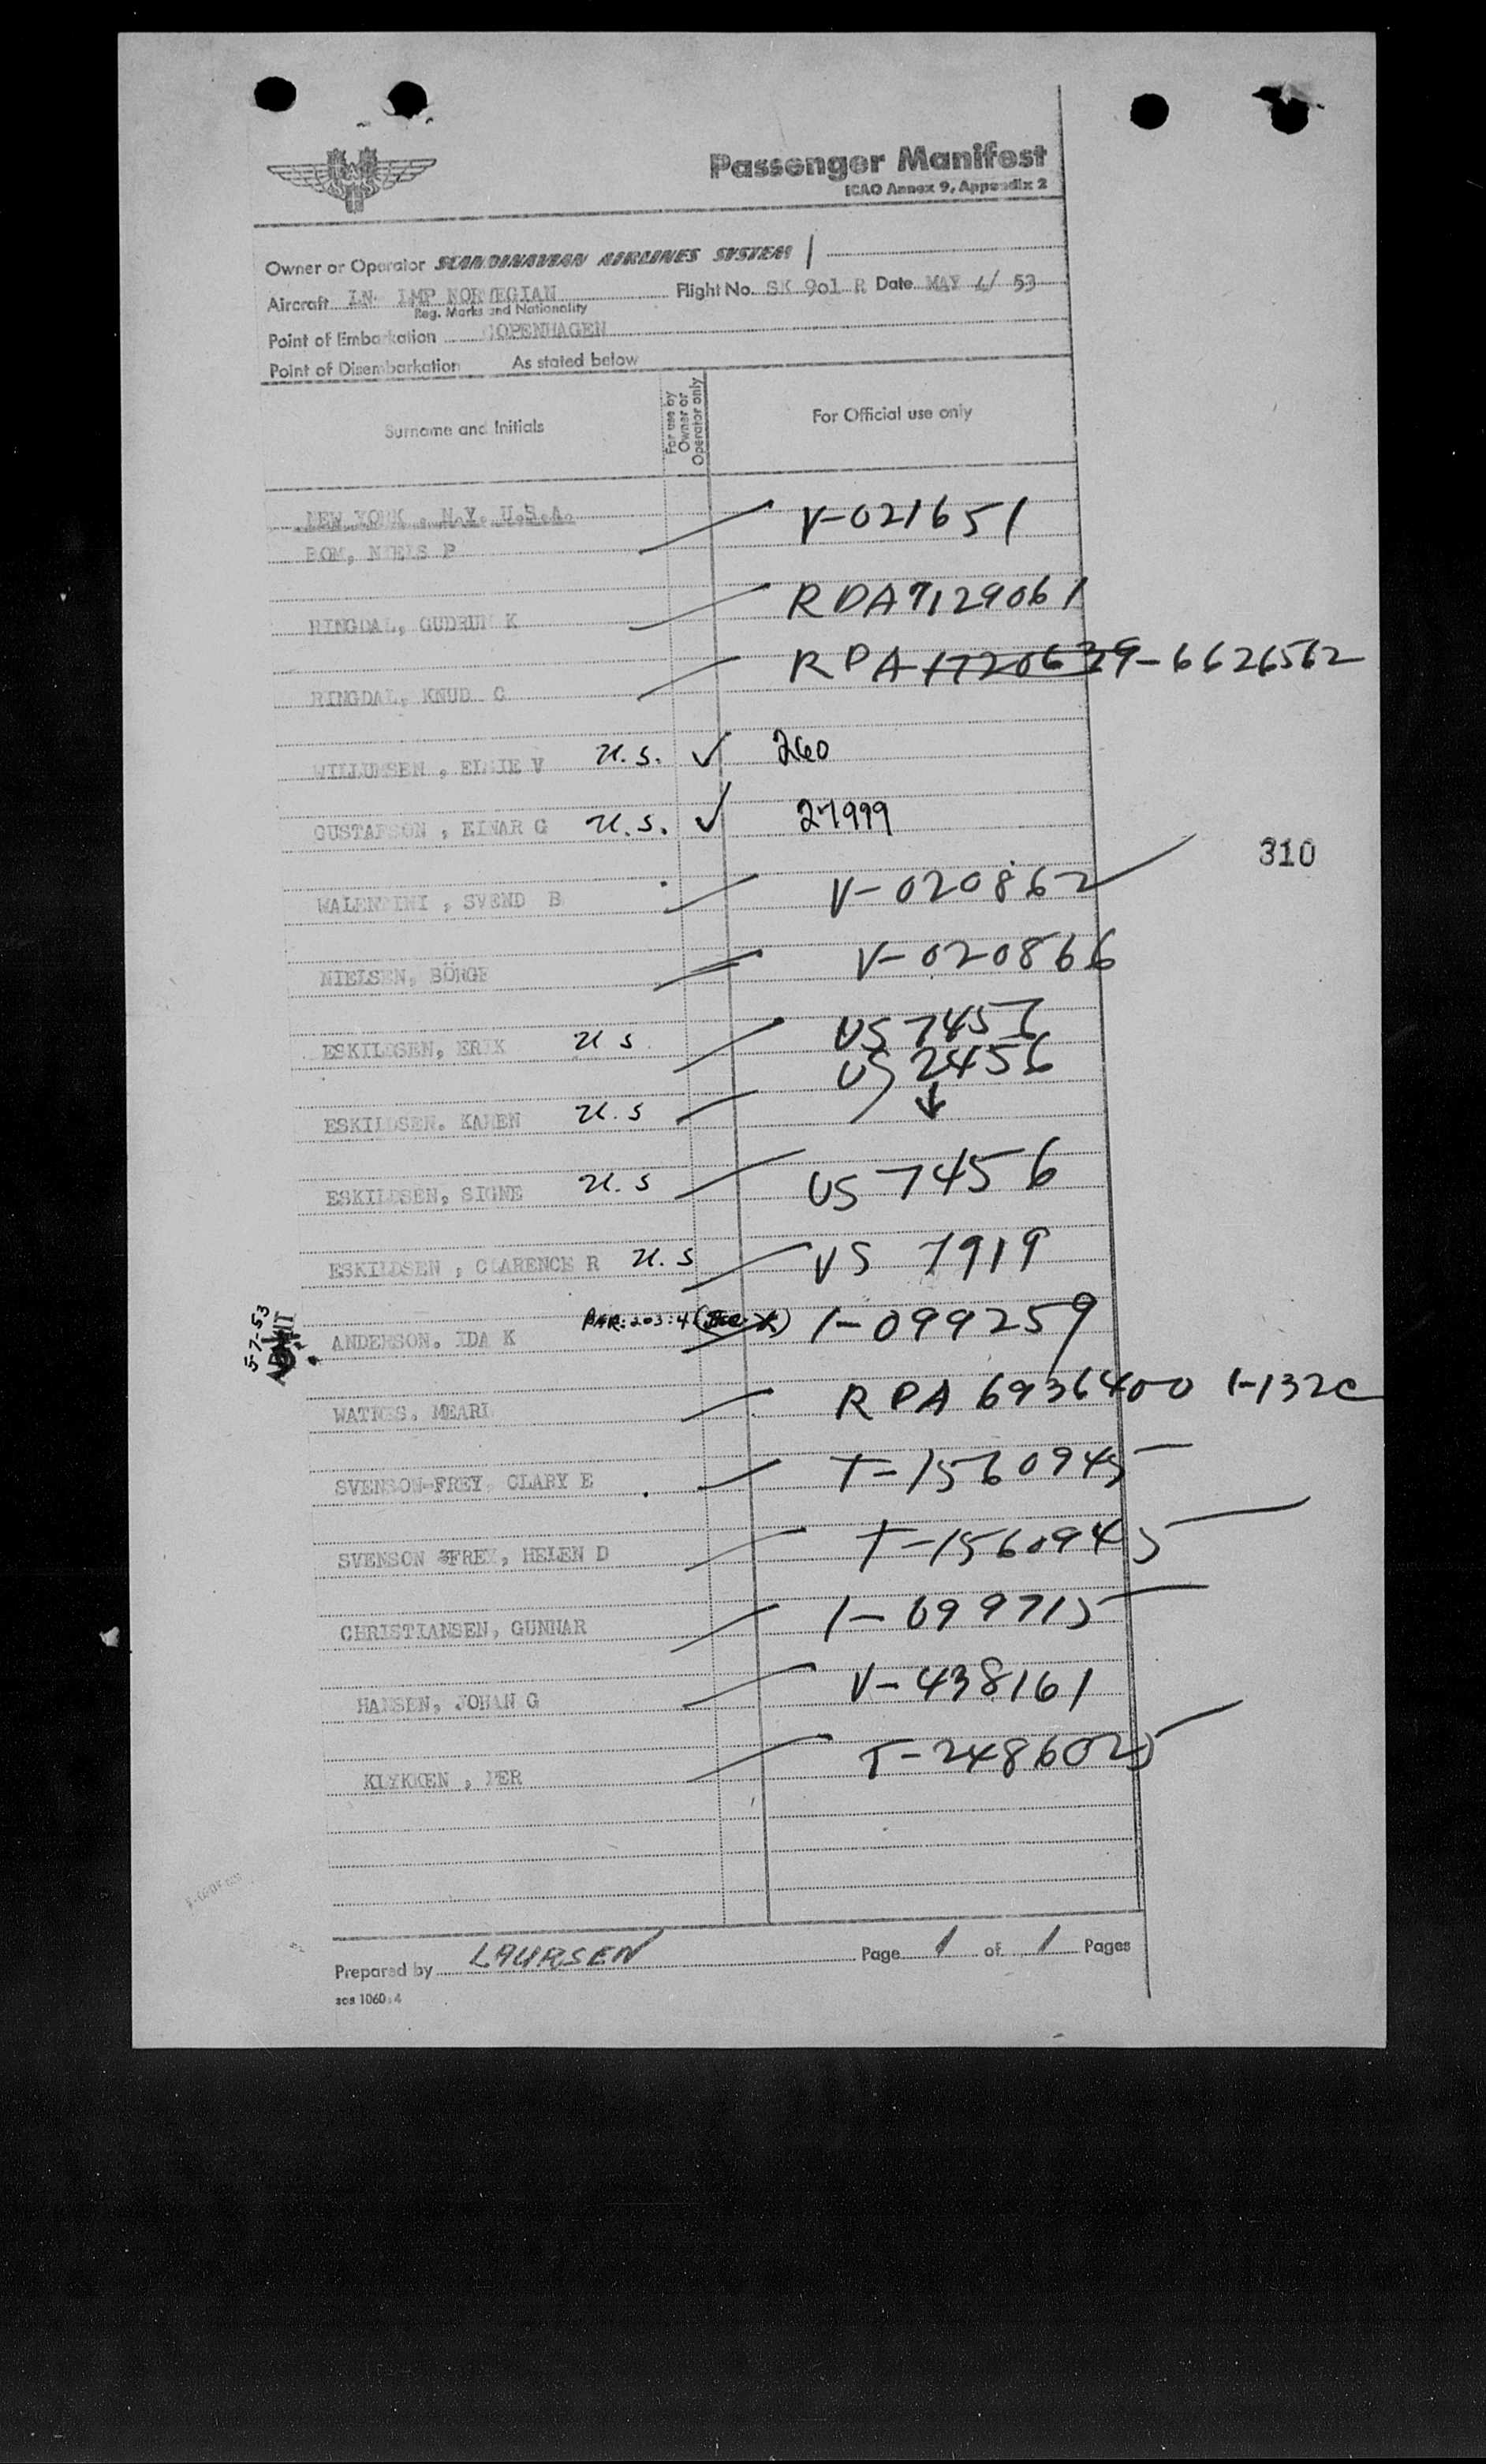 Passenger Manifest
ICAO Annex 9, Appendix 2
Owner or Operator SCANDINAVIAN AIRLINES SYSTEM
Aircraft LN- LMP NORWEGIAN Flight No. SK 901 R Date MAY / 53
Reg. Marks and Nationality
Point of Embarkation COPENHAGEN
Point of Disembarkation As stated below
Surname and Initials For use by Owner or Operator only For Official use only
NEW YORK , N.Y. U.S.A.
BOM, NIELS P V-021651
RINGDAL, GUDRUN K RDA7129061
RINGDAL, KNUD G RPA 1720639-6626562
WILLUMSEN , ELSIE V U.S. ✓ 260
GUSTAFSON , EINAR G U.S. ✓ 27999
310
WALENTINI , SVEND B V-020862
NIELSEN, BÖRGE V-020866
ESKILDSEN, ERIK U S US 7457
US 2456
ESKILDSEN. KAREN U.S ↓
ESKILDSEN, SIGNE U.S US 7456
ESKILDSEN , CLARENCE R U.S US 7919
5-7-53
ADMIT
ANDERSON. IDA K PAR: 203:4 1-099259
WATNES. MEARL RPA 6936400 1-132c
SVENSON-FREY, CLARY E T-1560945
SVENSON FREY, HELEN D T-1560945
CHRISTIANSEN, GUNNAR 1-099715
HANSEN, JOHAN G V-438161
KLYKKEN , PER T-2486025
Prepared by LAURSEN Page 1 of 1 Pages
sas 1060:4